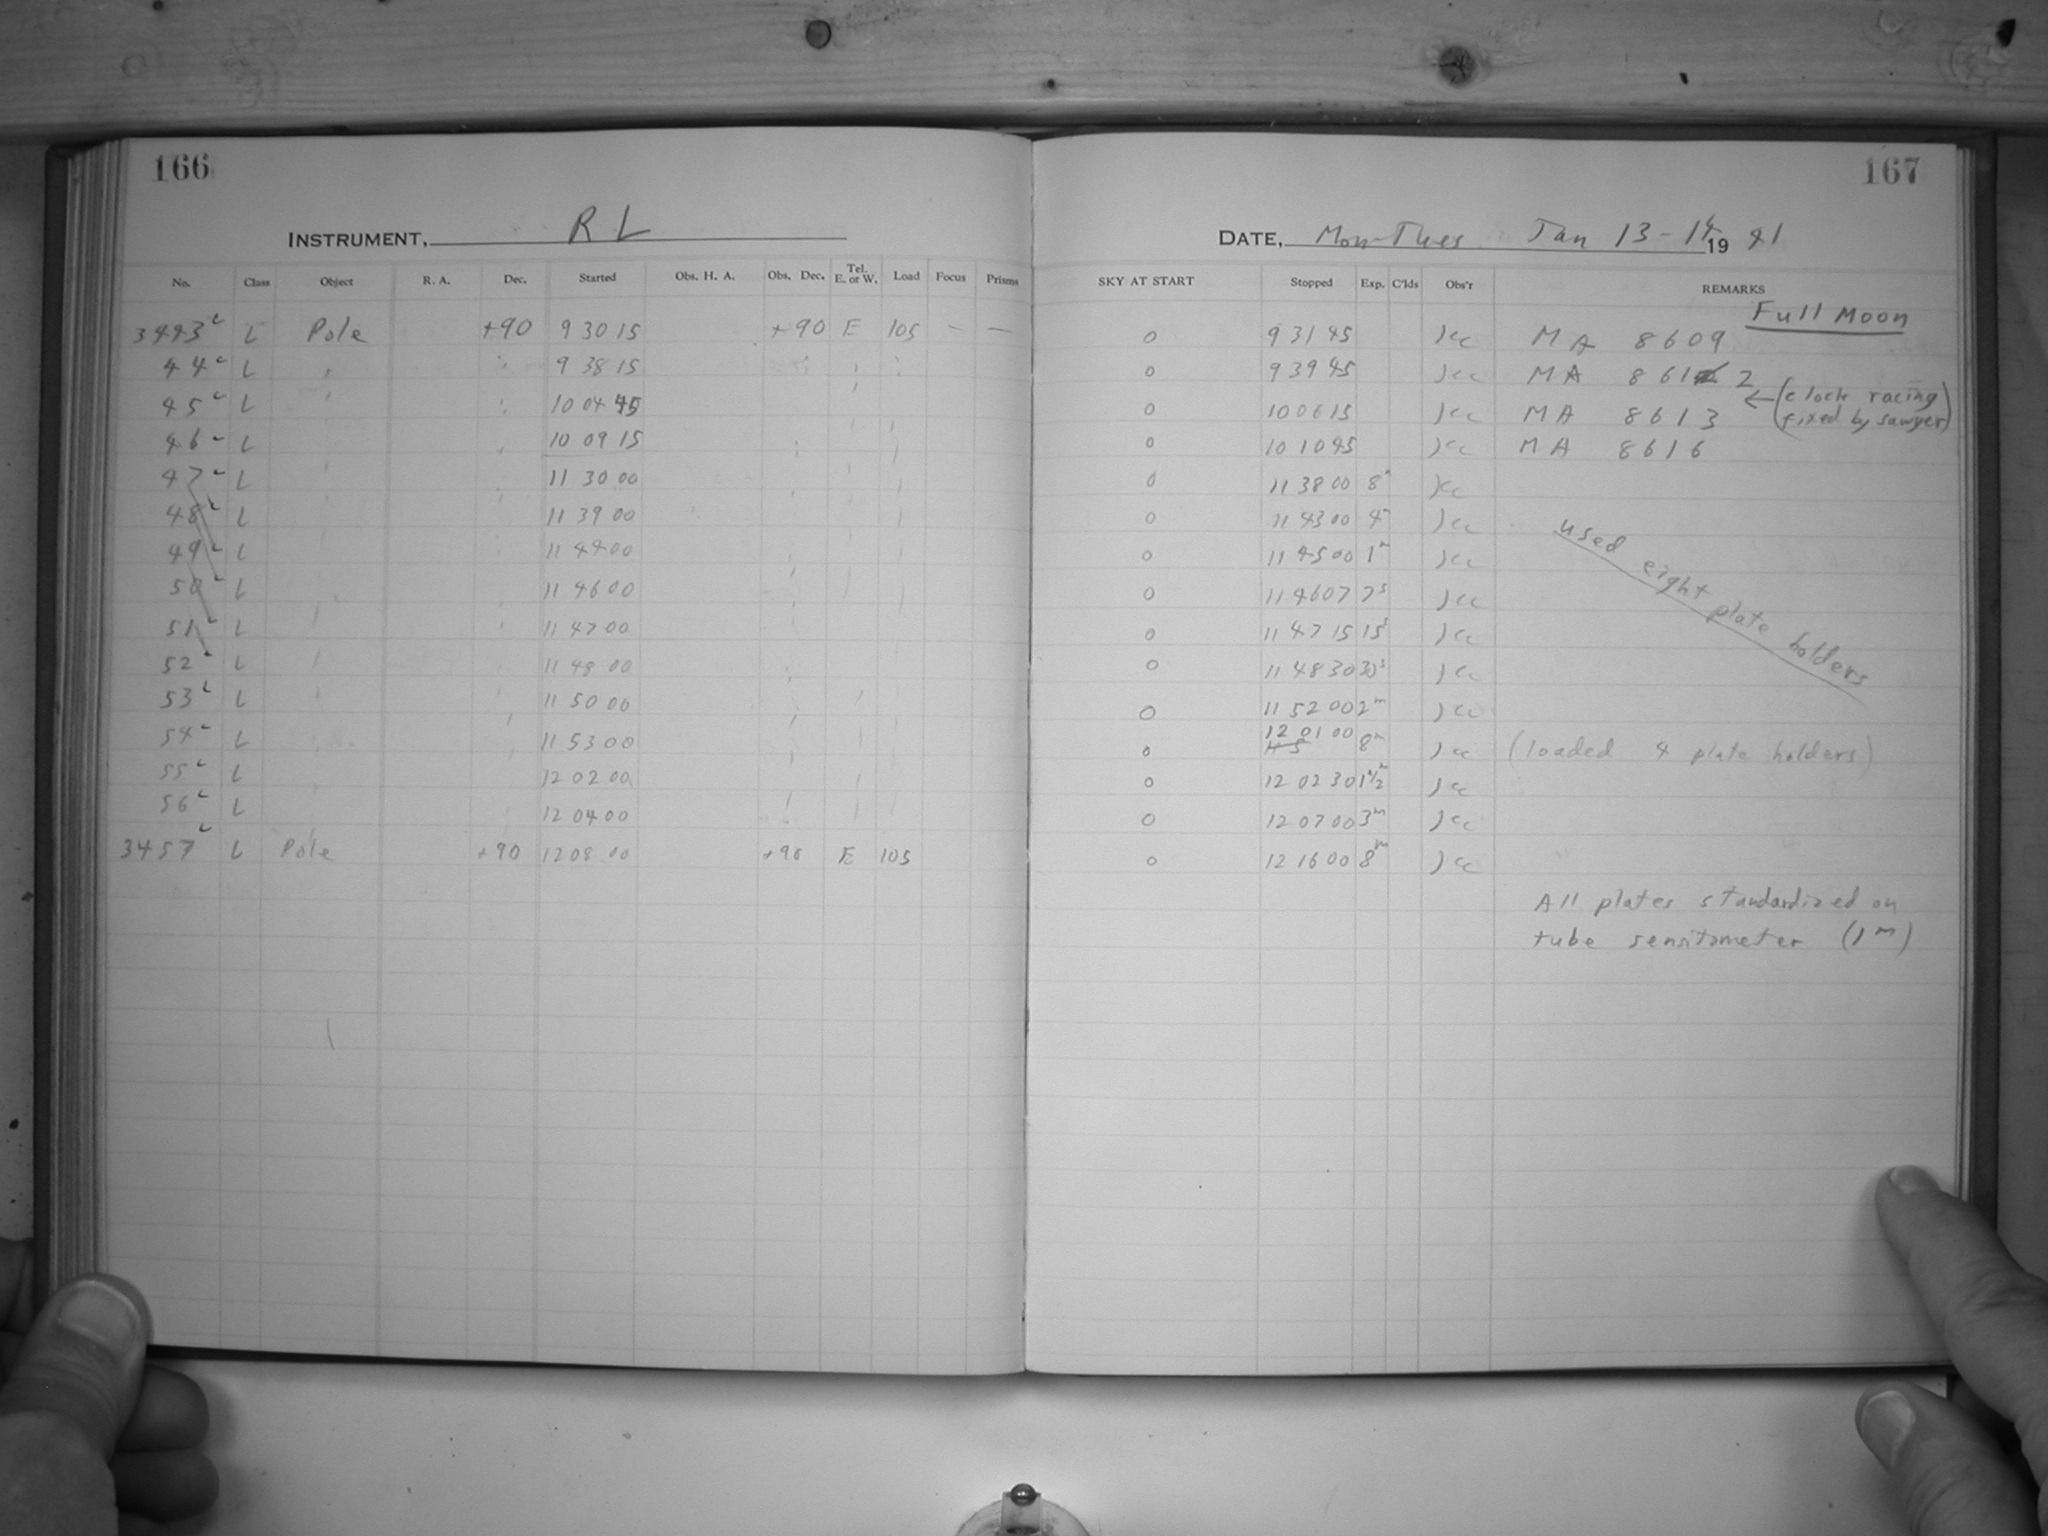 166
INSTRUMENT, R L
No. Class Object R. A. Dec. Started Obs. H. A. Obs. Dec. Tel. E. or W. Load Focus Prisms
3443 L Pole +90 9 30 15 +90 E 105 — —
44 L 9 38 15
45 L 10 04 45
46 L 10 09 15
47 L 11 30 00
48 L 11 39 00
49 L 11 44 00
50 L 11 46 00
51 L 11 47 00
52 L 11 48 00
53 L 11 50 00
54 L 11 53 00
55 L 12 02 00
56 L 12 04 00
3457 L Pole +90 12 08 00 +90 E 105
167
DATE, Mon-Tues Jan 13-14 19 41
SKY AT START Stopped Exp. C'lds Obs'r REMARKS
Full Moon
0 9 31 45 Jcc MA 8609
0 9 39 45 Jcc MA 861 2
0 10 06 15 Jcc MA 8613 ← (clock racing fixed by sawyer)
0 10 10 45 Jcc MA 8616
0 11 38 00 8m Jcc
0 11 43 00 4m Jcc
0 11 45 00 1m Jcc
0 11 46 07 7s Jcc
0 11 47 15 15s Jcc
0 11 48 30 30s Jcc
0 11 52 00 2m Jcc
used eight plate holders
0 12 01 00 8m Jcc (loaded 4 plate holders)
0 12 02 30 1 1/2m Jcc
0 12 07 00 3m Jcc
0 12 16 00 8m Jcc
All plates standardized on
tube sensitometer (1m)